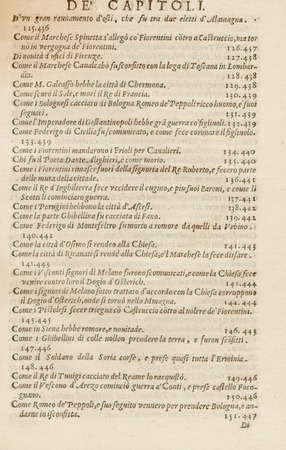 DE' CAPITOLI.
D'vn gran raunamento d'osti, che fu tra due eletti d'Alamagna.
125.436
Come il Marchese Spinetta s'allegò co' Fiorentini cõtro a Castruccio, ma tor
nò in vergogna de' Fiorentini. 126.437
Di nouità d'ufici di Firenze. 127.438
Come il Marchese Caualcabò fu sconfitto con la lega di Toscani in Lombar-
dia. 127.438
Come M. Galeasso hebbe la città di Chermona. 129.438
Come scurò il Sole, e morì il Re di Francia. 130.439
Come i Bolognesi cacciaro di Bologna Romeo de' Peppoli ricco huomo, e suoi
seguaci. 131.439
Come l'Imperadore di Costantinopoli hebbe grã guerra co' figliuoli. 132.439
Come Federigo di Cicilia fu scomunicato, e come fece coronare il figliuolo.
133.439
Come i Fiorentini mandarono i Frioli per Caualieri. 134.440
Chi fu il Poeta Dante Alighieri, e come morio. 135.440
Come i Fiorentini rimaser fuori della signoria del Re Ruberto, e fecero parte
delle mura della cittade. 136.441
Come il Re d'Inghilterra fece vccidere il cugino, e piu suoi Baroni, e come li
Scotti li cominciaro guerra. 137.441
Come i Perugini hebbono la città d'Ascesi. 138.441
Come la parte Ghibellina fu cacciata di Fano. 139.442
Come Federigo di Montefeltro fu morto a romore da quelli da Vrbino.
140.442
Come la città d'Osimo si rendeo alla Chiesa. 141.443
Come la città di Ricanati si rendeo alla Chiesa, e'l Marchese la fece disfare.
141.443
Come i Visconti signori di Melano furono scomunicati, e come la Chiesa fece
venire contro loro il Dogio d'Osterich. 143.443
Come i signori di Melano fotto trattato d'accordo con la Chiesa corruppono
il Dogio d'Osterich, onde si tornò nella Magna. 144.444
Come i Pistolesi fecer triegua cõ Castruccio cõtro al volere de' Fiorentini.
145.445
Come in Siena hebbe romore, e nouitade. 146.445
Come i Ghibellini di colle vollon prendere la terra, e furon scõfitti.
147.446
Come il Soldano della Soria corse, e prese quasi tutta l'Erminia.
148.446
Come il Re di Tunigi cacciato del Reame lo racquistò. 149.446
Come il Vescouo d'Arezo cominciò guerra a' Conti, e prese castello Foco-
gnano. 150.446
Come Romeo de' Peppoli, e suo seguito vennero per prendere Bologna, e an-
darne in isconfitta. 151.447
Di